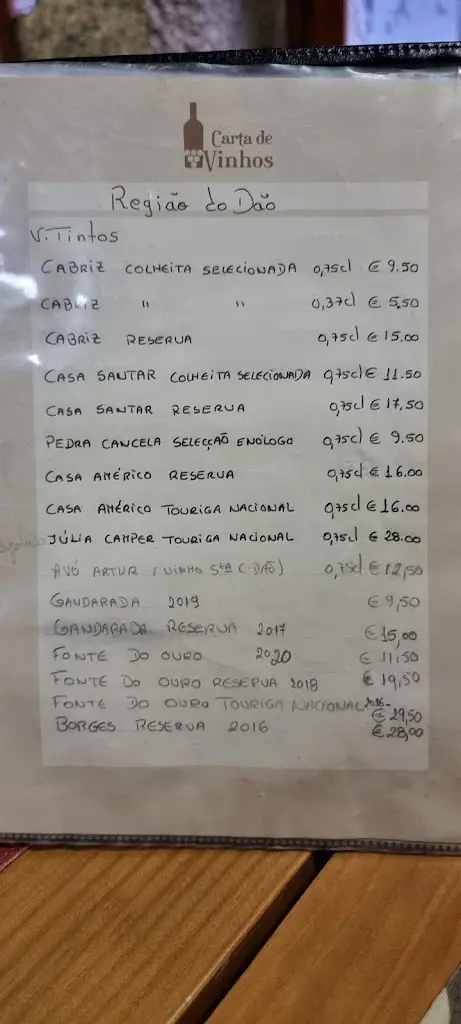 Carta de
Vinhos
Região do Dão
V. Tintos
CABRIZ COLHEITA SELECIONADA 0,75cl € 9.50
CABRIZ " " 0,37cl € 5,50
CABRIZ RESERVA 0,75cl € 15.00
CASA SANTAR COLHEITA SELECIONADA 0,75cl € 11.50
CASA SANTAR RESERVA 0,75cl € 17,50
PEDRA CANCELA SELECÇÃO ENÓLOGO 0,75cl € 9.50
CASA AMÉRICO RESERVA 0,75cl € 16.00
CASA AMÉRICO TOURIGA NACIONAL 0,75cl € 16.00
JÚLIA CAMPER TOURIGA NACIONAL 0,75cl € 28.00
AVÓ ARTUR VINHO (DÃO) 0,75cl € 12,50
GANDARADA 2019 € 9,50
GANDARADA RESERVA 2017 € 15,00
FONTE DO OURO 2020 € 11,50
FONTE DO OURO RESERVA 2018 € 19,50
FONTE DO OURO TOURIGA NACIONAL 2016- € 29,50
BORGES RESERVA 2016 € 28,00